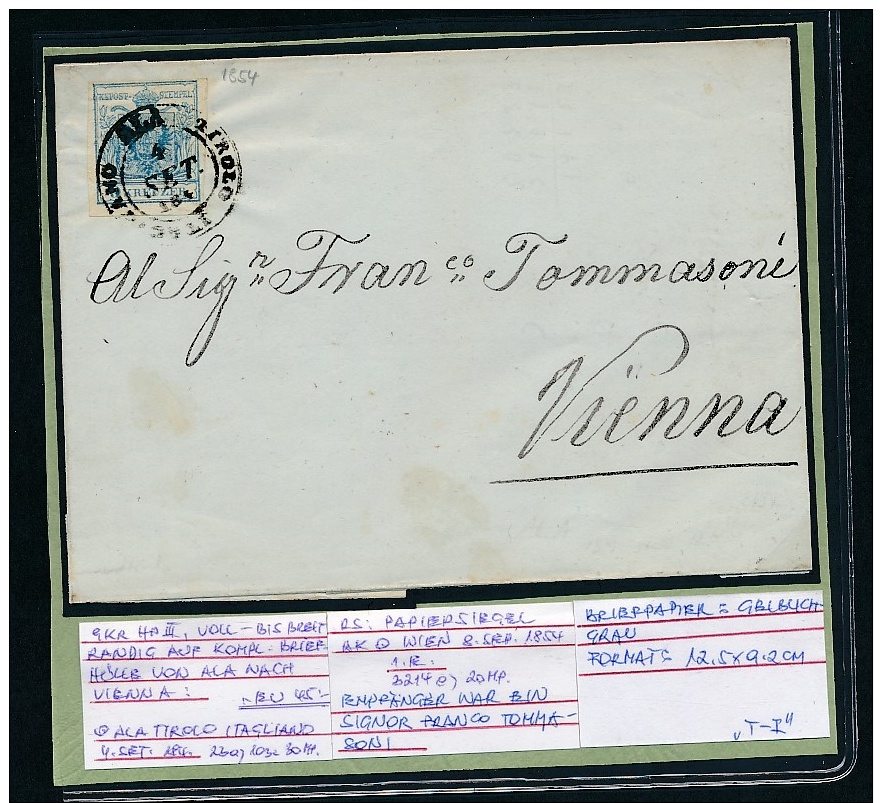 1854
K.K.POST-STEMPEL
ALA TIROLO
4
SET.
KREUZER
Al Sigrn Franco Tommasoni
Vienna
9KR HP III, VOLL-BIS BREIT
RANDIG AUF KOMPL. BRIEF
HÜLLE VON ALA NACH
VIENNA:
45:-
ALA TIROLO ITAGLIANO
4. SET. 184.
RS: PAPIERSIEGEL
AK WIEN 8. SEP. 1854
1.E.
EMPFÄNGER WAR EIN
SIGNOR FRANCO TOMMA-
SONI
BRIEFPAPIER = GELBLICH
GRAU
FORMAT = 12.5 x 9.2 CM
"T-I"